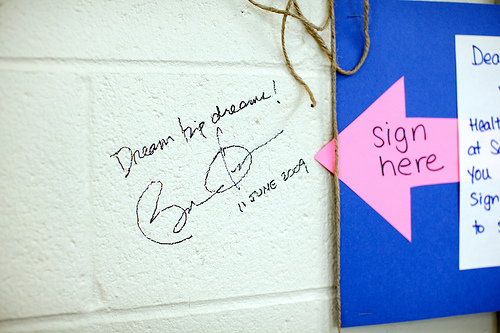 Dream big dreams!
11 JUNE 2009
sign
here
Dea
Healt
at S
you
Sign
to